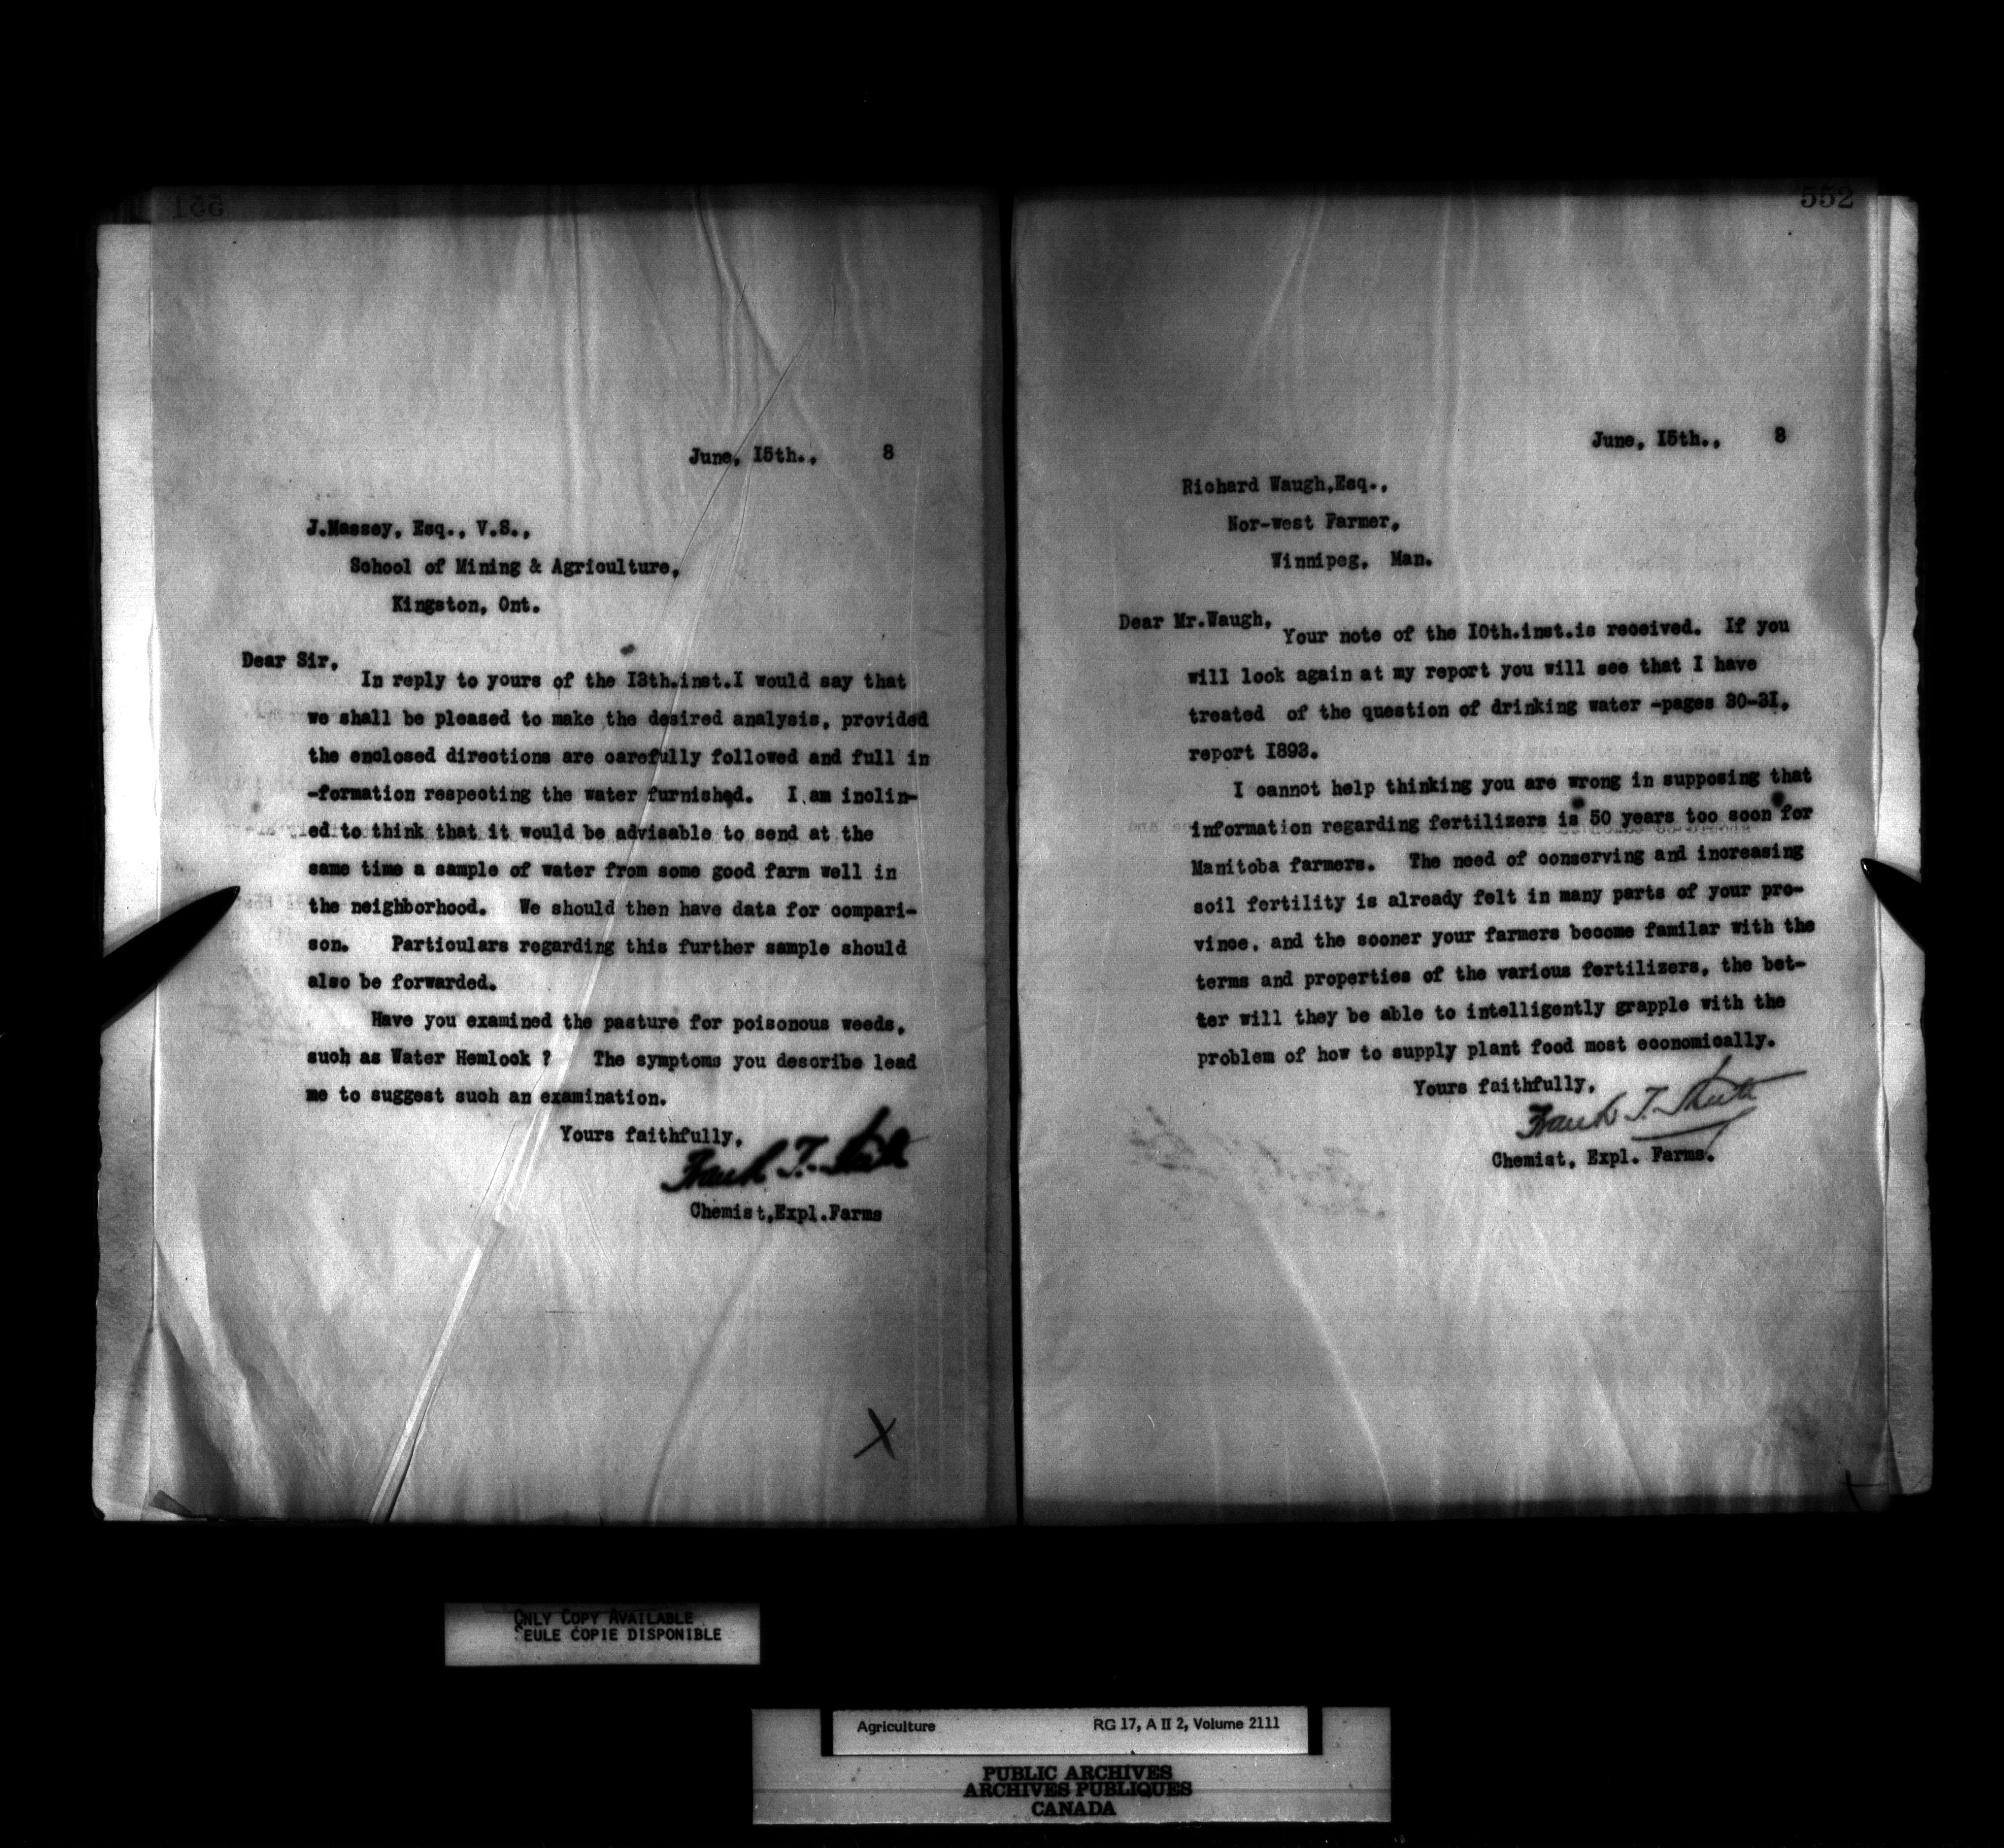 551
June, I5th., 8
J.Massey, Esq., V.S.,
School of Mining & Agriculture,
Kingston, Ont.
Dear Sir,
In reply to yours of the I3th.inst.I would say that
we shall be pleased to make the desired analysis, provided
the enclosed directions are carefully followed and full in
-formation respecting the water furnished. I am inclin-
ed to think that it would be advisable to send at the
same time a sample of water from some good farm well in
the neighborhood. We should then have data for compari-
son. Particulars regarding this further sample should
also be forwarded.
Have you examined the pasture for poisonous weeds,
such as Water Hemlock ? The symptoms you describe lead
me to suggest such an examination.
Yours faithfully,
Frank T. Shutt
Chemist,Expl.Farms
X
552
June, I5th., 8
Richard Waugh,Esq.,
Nor-west Farmer,
Winnipeg, Man.
Dear Mr.Waugh,
Your note of the I0th.inst.is received. If you
will look again at my report you will see that I have
treated of the question of drinking water -pages 30-3I,
report I893.
I cannot help thinking you are wrong in supposing that
information regarding fertilizers is 50 years too soon for
Manitoba farmers. The need of conserving and increasing
soil fertility is already felt in many parts of your pro-
vince, and the sooner your farmers become familar with the
terms and properties of the various fertilizers, the bet-
ter will they be able to intelligently grapple with the
problem of how to supply plant food most economically.
Yours faithfully,
Frank T. Shutt
Chemist, Expl. Farms.
ONLY COPY AVAILABLE
SEULE COPIE DISPONIBLE
Agriculture RG 17, A II 2, Volume 2111
PUBLIC ARCHIVES
ARCHIVES PUBLIQUES
CANADA